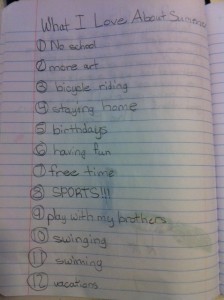 What I Love About Summer
① No school
② more art
③ bicycle riding
④ staying home
⑤ birthdays
⑥ having fun
⑦ free time
⑧ SPORTS!!!
⑨ play with my brothers
⑩ swinging
⑪ swimming
⑫ vacations